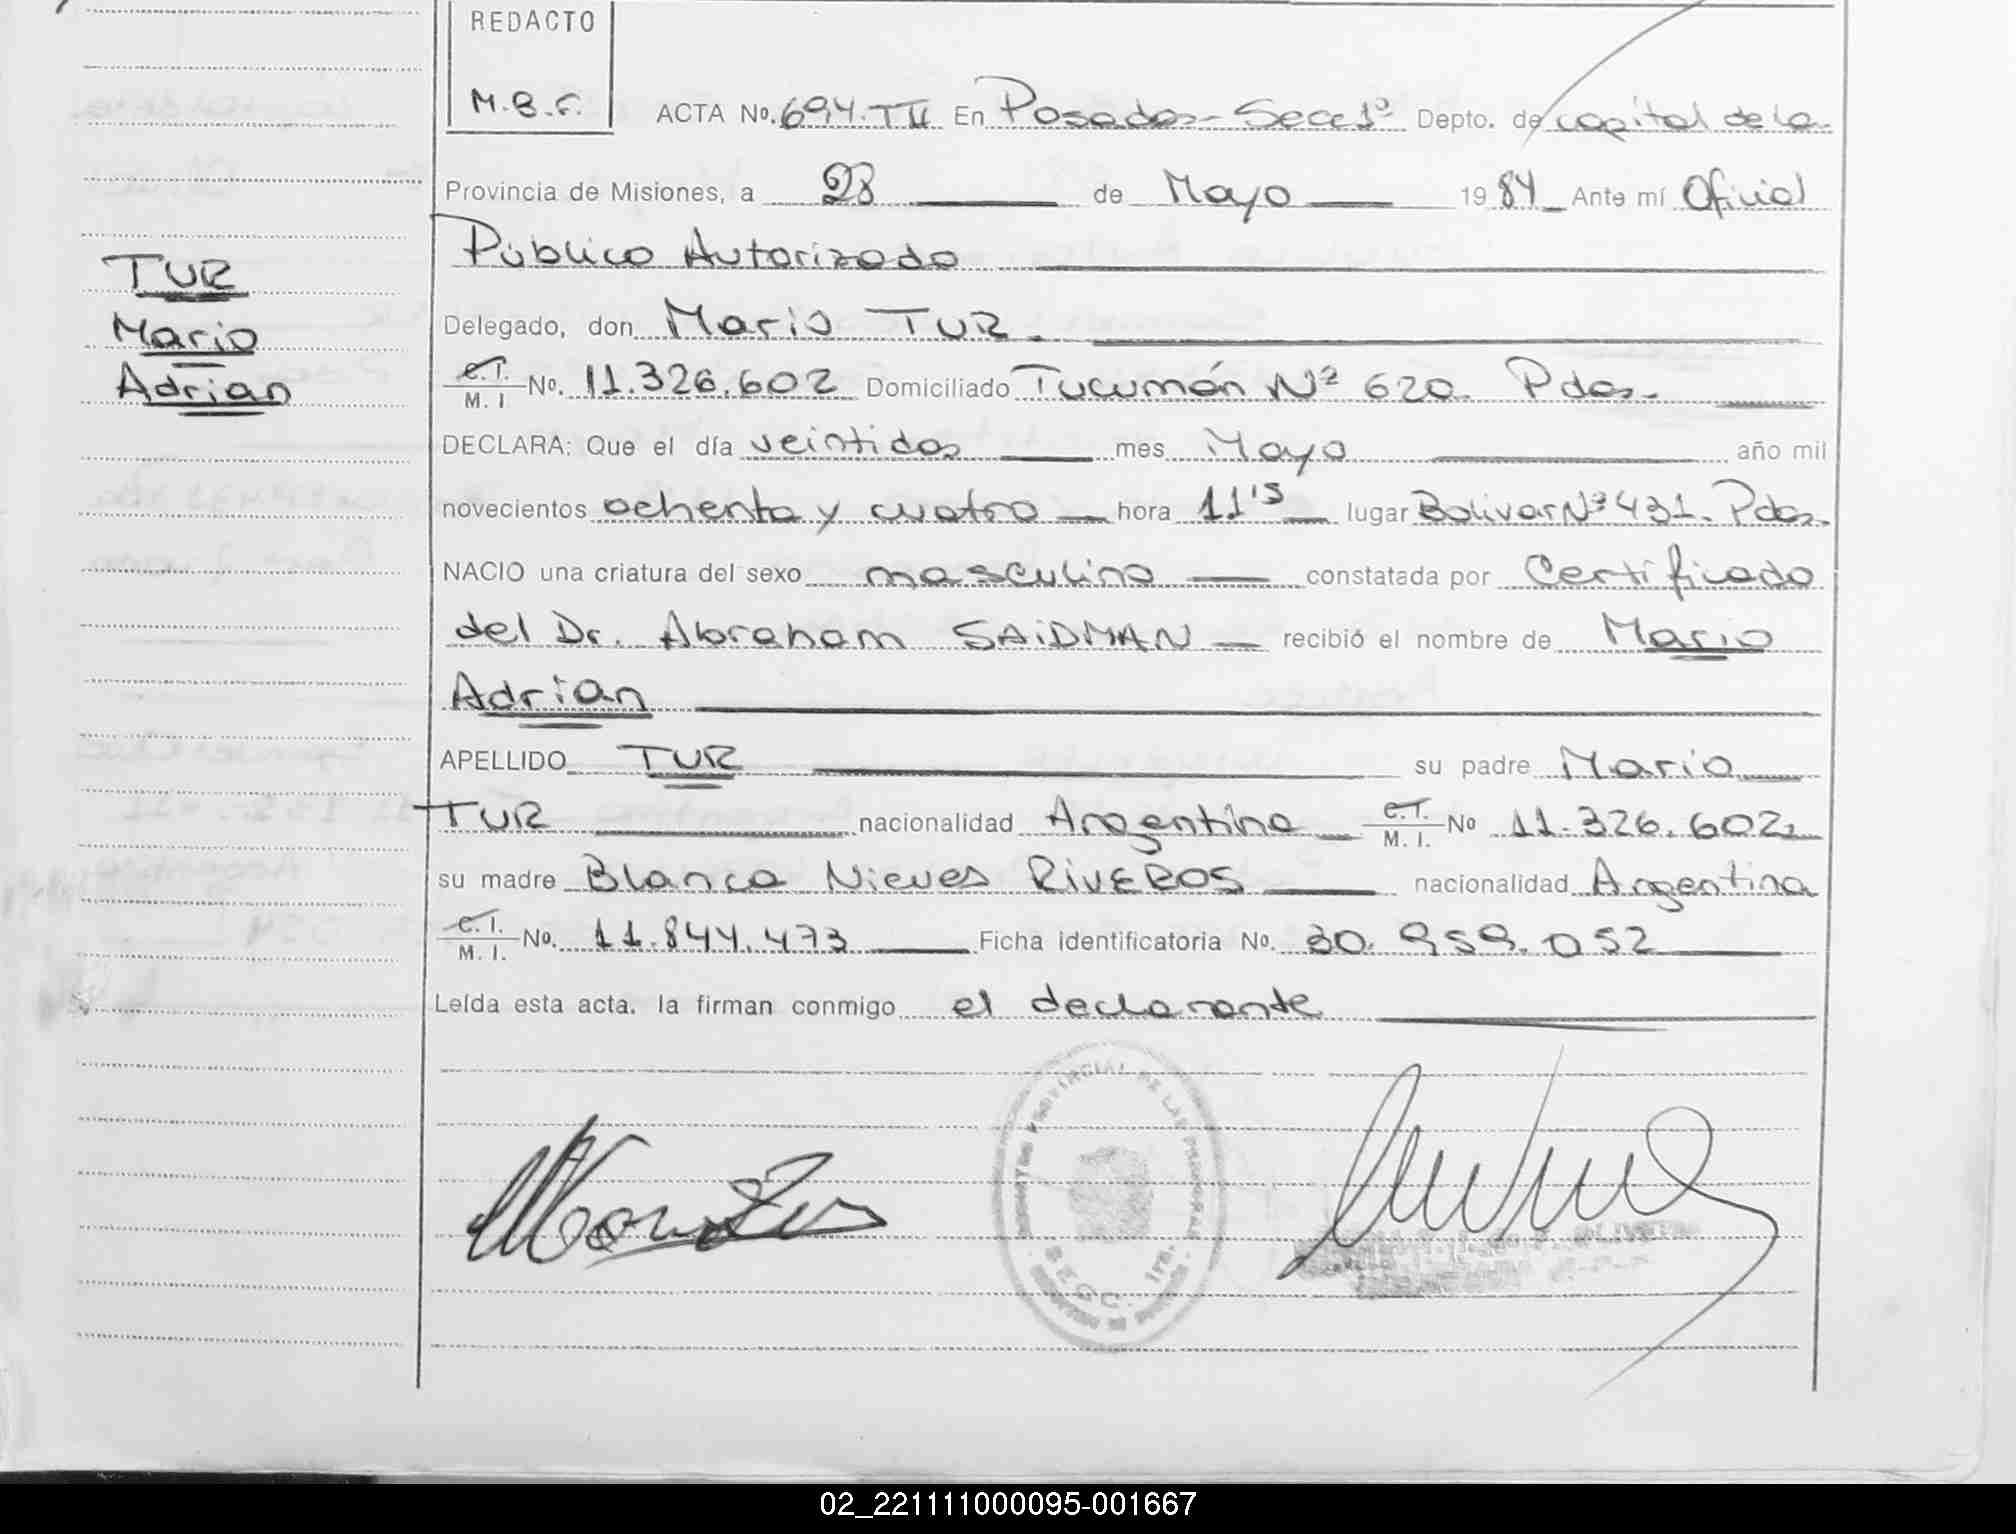 REDACTO
M.B.F.
ACTA No. 694.TII En Posadas - Secc 1º Depto. de capital de la
Provincia de Misiones, a 28 de Mayo 1984 Ante mí Oficial
Público Autorizado
TUR
Mario
Adrian
Delegado, don Mario TUR.
C.I. M.I No. 11.326.602 Domiciliado Tucumán Nº 620. Pdas.
DECLARA: Que el día veintidos mes Mayo año mil
novecientos ochenta y cuatro hora 11'15 lugar Bolivar Nº 431. Pdas.
NACIO una criatura del sexo masculino constatada por Certificado
del Dr. Abraham SAIDMAN recibió el nombre de Mario
Adrian
APELLIDO TUR su padre Mario
TUR nacionalidad Argentina C.I. M.I. No 11.326.602
su madre Blanca Nieves RIVEROS nacionalidad Argentina
C.I. M.I. No. 11.844.473 Ficha identificatoria No. 30.959.052
Leída esta acta, la firman conmigo el declarante
PROVINCIAL DE LAS PERSONAS
SECC. 1ra.
02_221111000095-001667